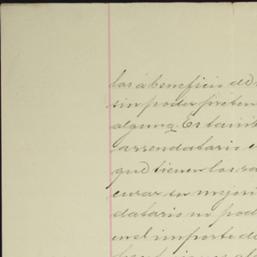 las á beneficio de
sin poder preten
alguna. Es tambi
arrendatario
que tienen los
curar su mejori
datario no pod
en el importe de